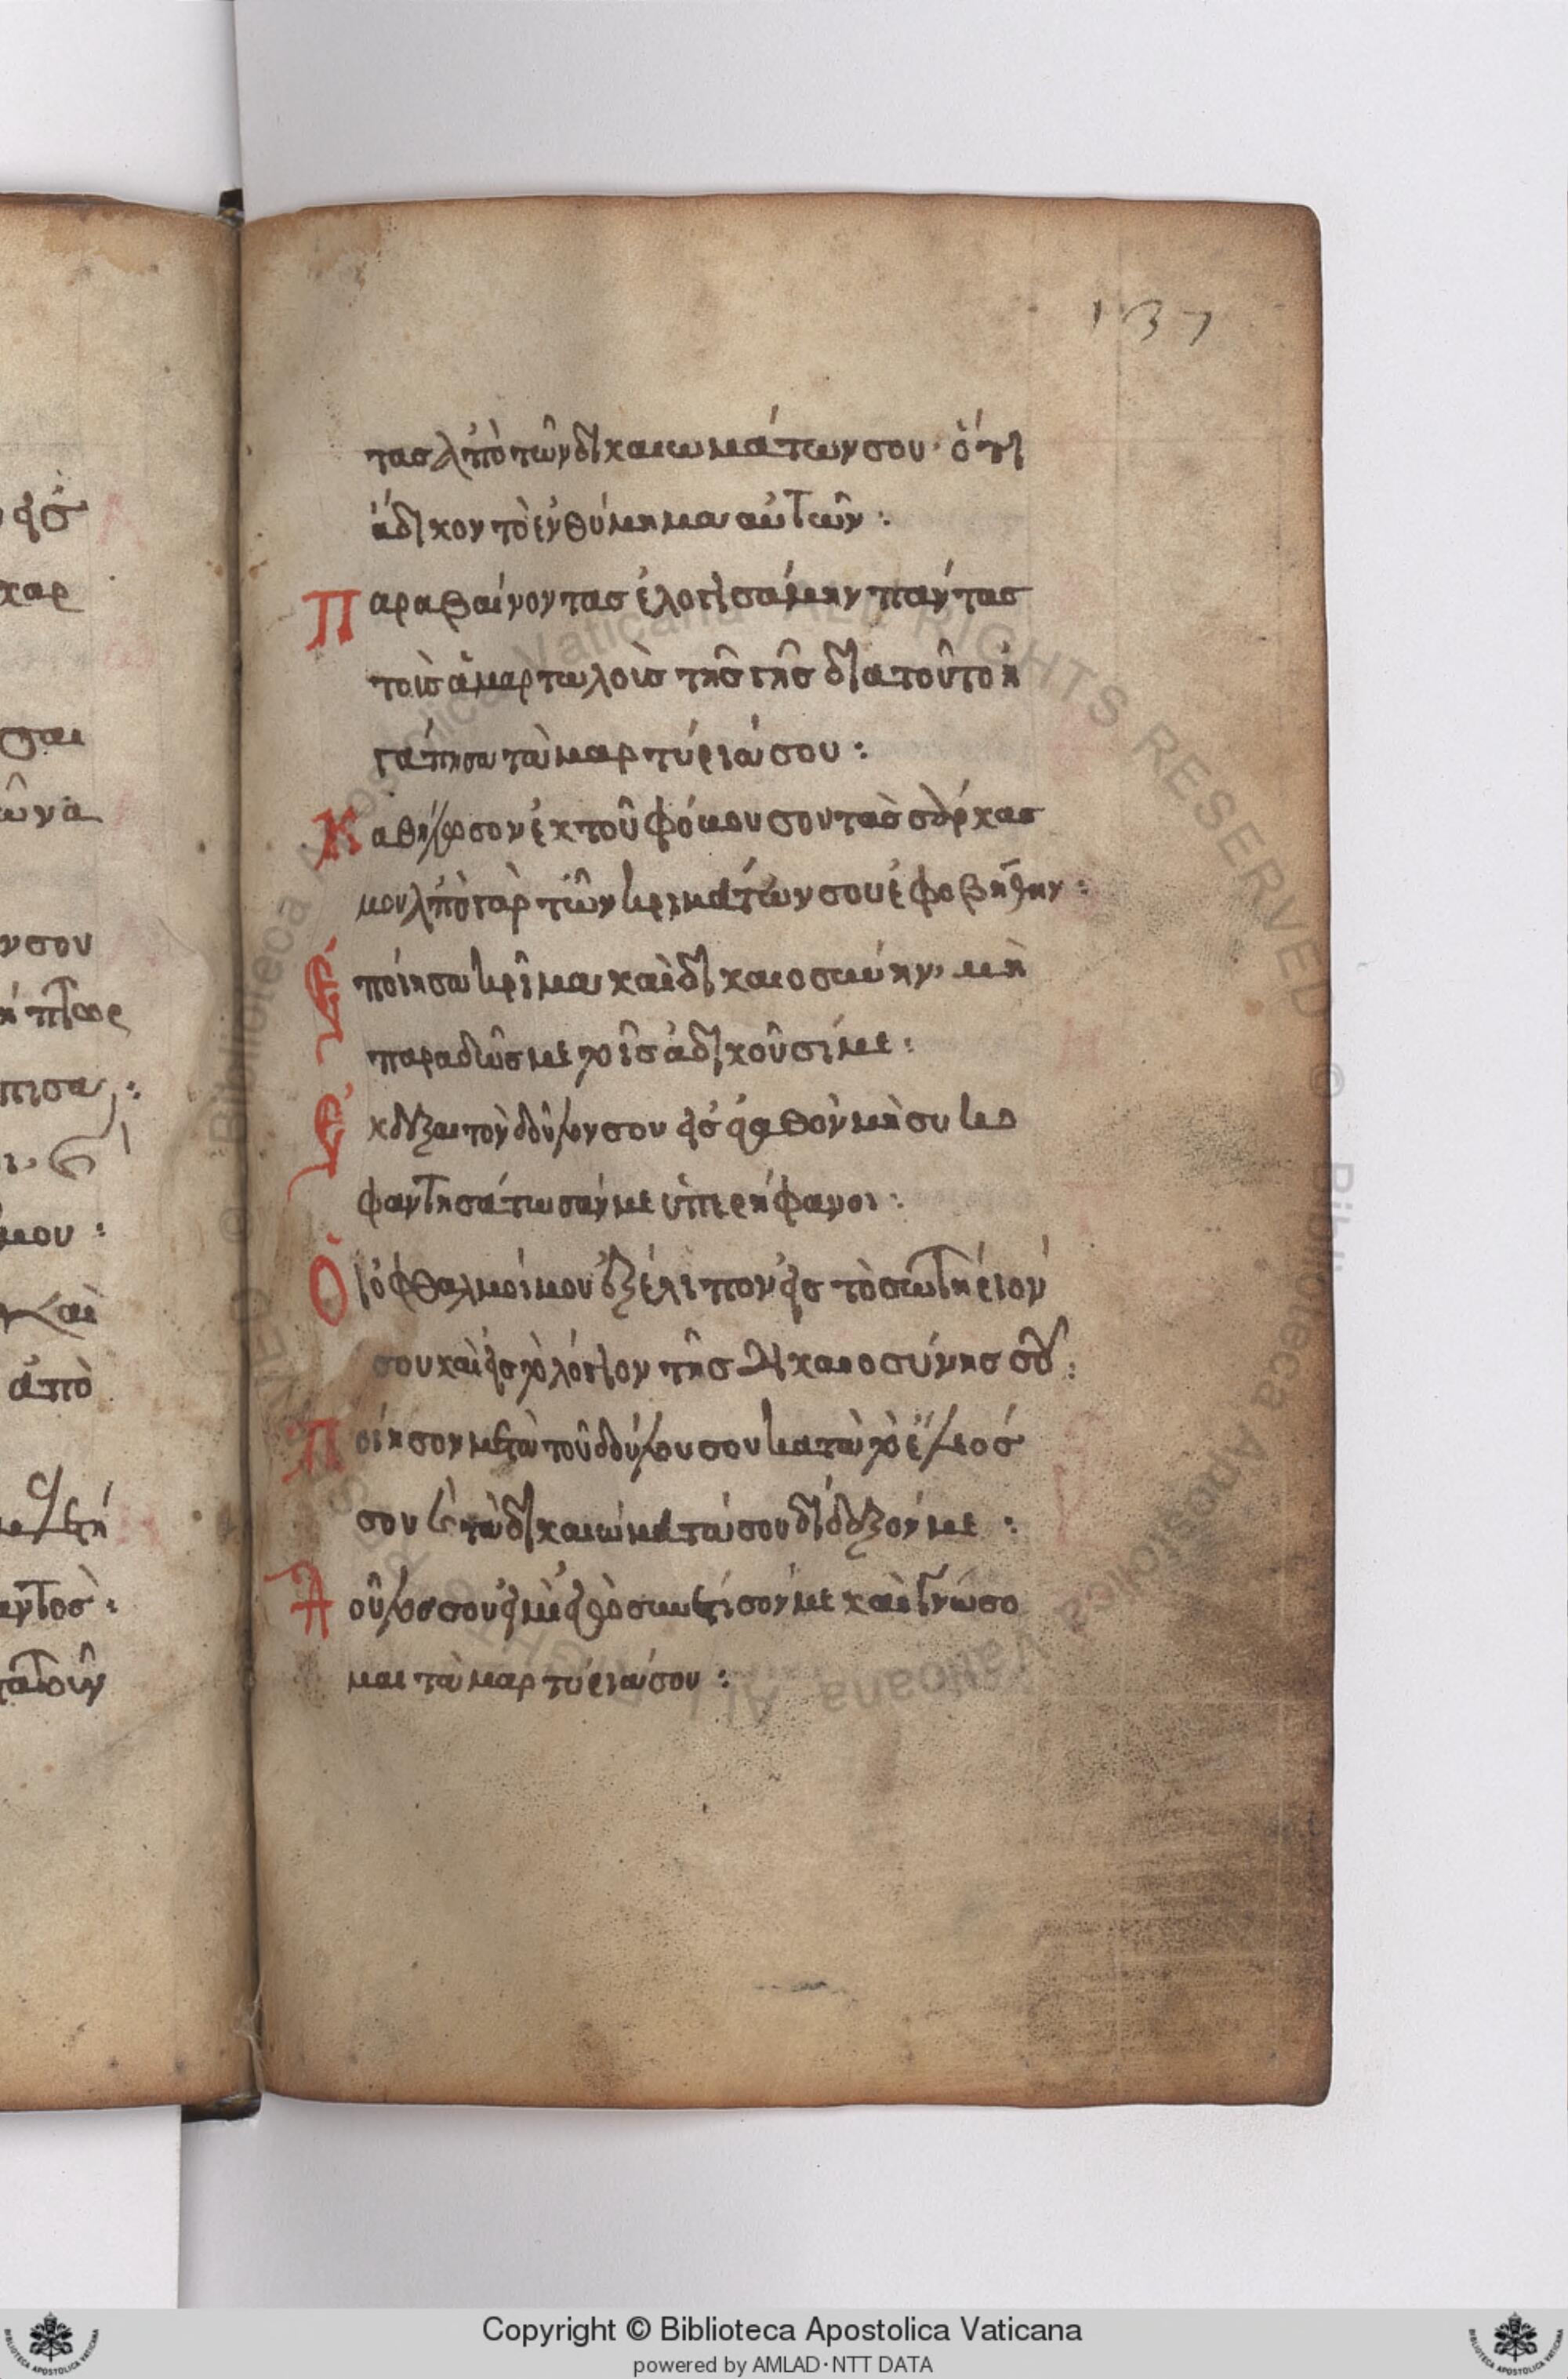 137
τας ἀπὸ τῶν δικαιωμάτων σου· ὅτι
ἄδικον τὸ ἐνθύμημα αὐτῶν :
Παραβαίνοντας ἐλογισάμην πάντας
τοὺς ἁμαρτωλοὺς τῆς γῆς διατοῦτο ἠ
γάπησα τὰ μαρτύριά σου :
Καθήλωσον ἐκ τοῦ φόβου σου τὰς σάρκας
μου ἀπὸ γὰρ τῶν κριμάτων σου ἐφοβήθην :
Ἐποίησα κρίμα καὶ δικαιοσύνην, μὴ
παραδῶς με τοῖς ἀδικοῦσί με :
Ἔκδεξαι τὸν δοῦλον σου εἰς ἀγαθὸν μὴ συκο
φαντησάτωσάν με ὑπερήφανοι :
Οἱ ὀφθαλμοί μου ἐξέλιπον εἰς τὸ σωτήριόν
σου καὶ εἰς τὸ λόγιον τῆς δικαιοσύνης σου :
Ποίησον μετὰ τοῦ δούλου σου κατὰ τὸ ἔλεός
σου καὶ τὰ δικαιώματά σου δίδαξόν με :
Δοῦλος σου εἰμὶ ἐγὼ συνέτισόν με καὶ γνώσο
μαι τὰ μαρτύριά σου :
Copyright © Biblioteca Apostolica Vaticana
powered by AMLAD·NTT DATA